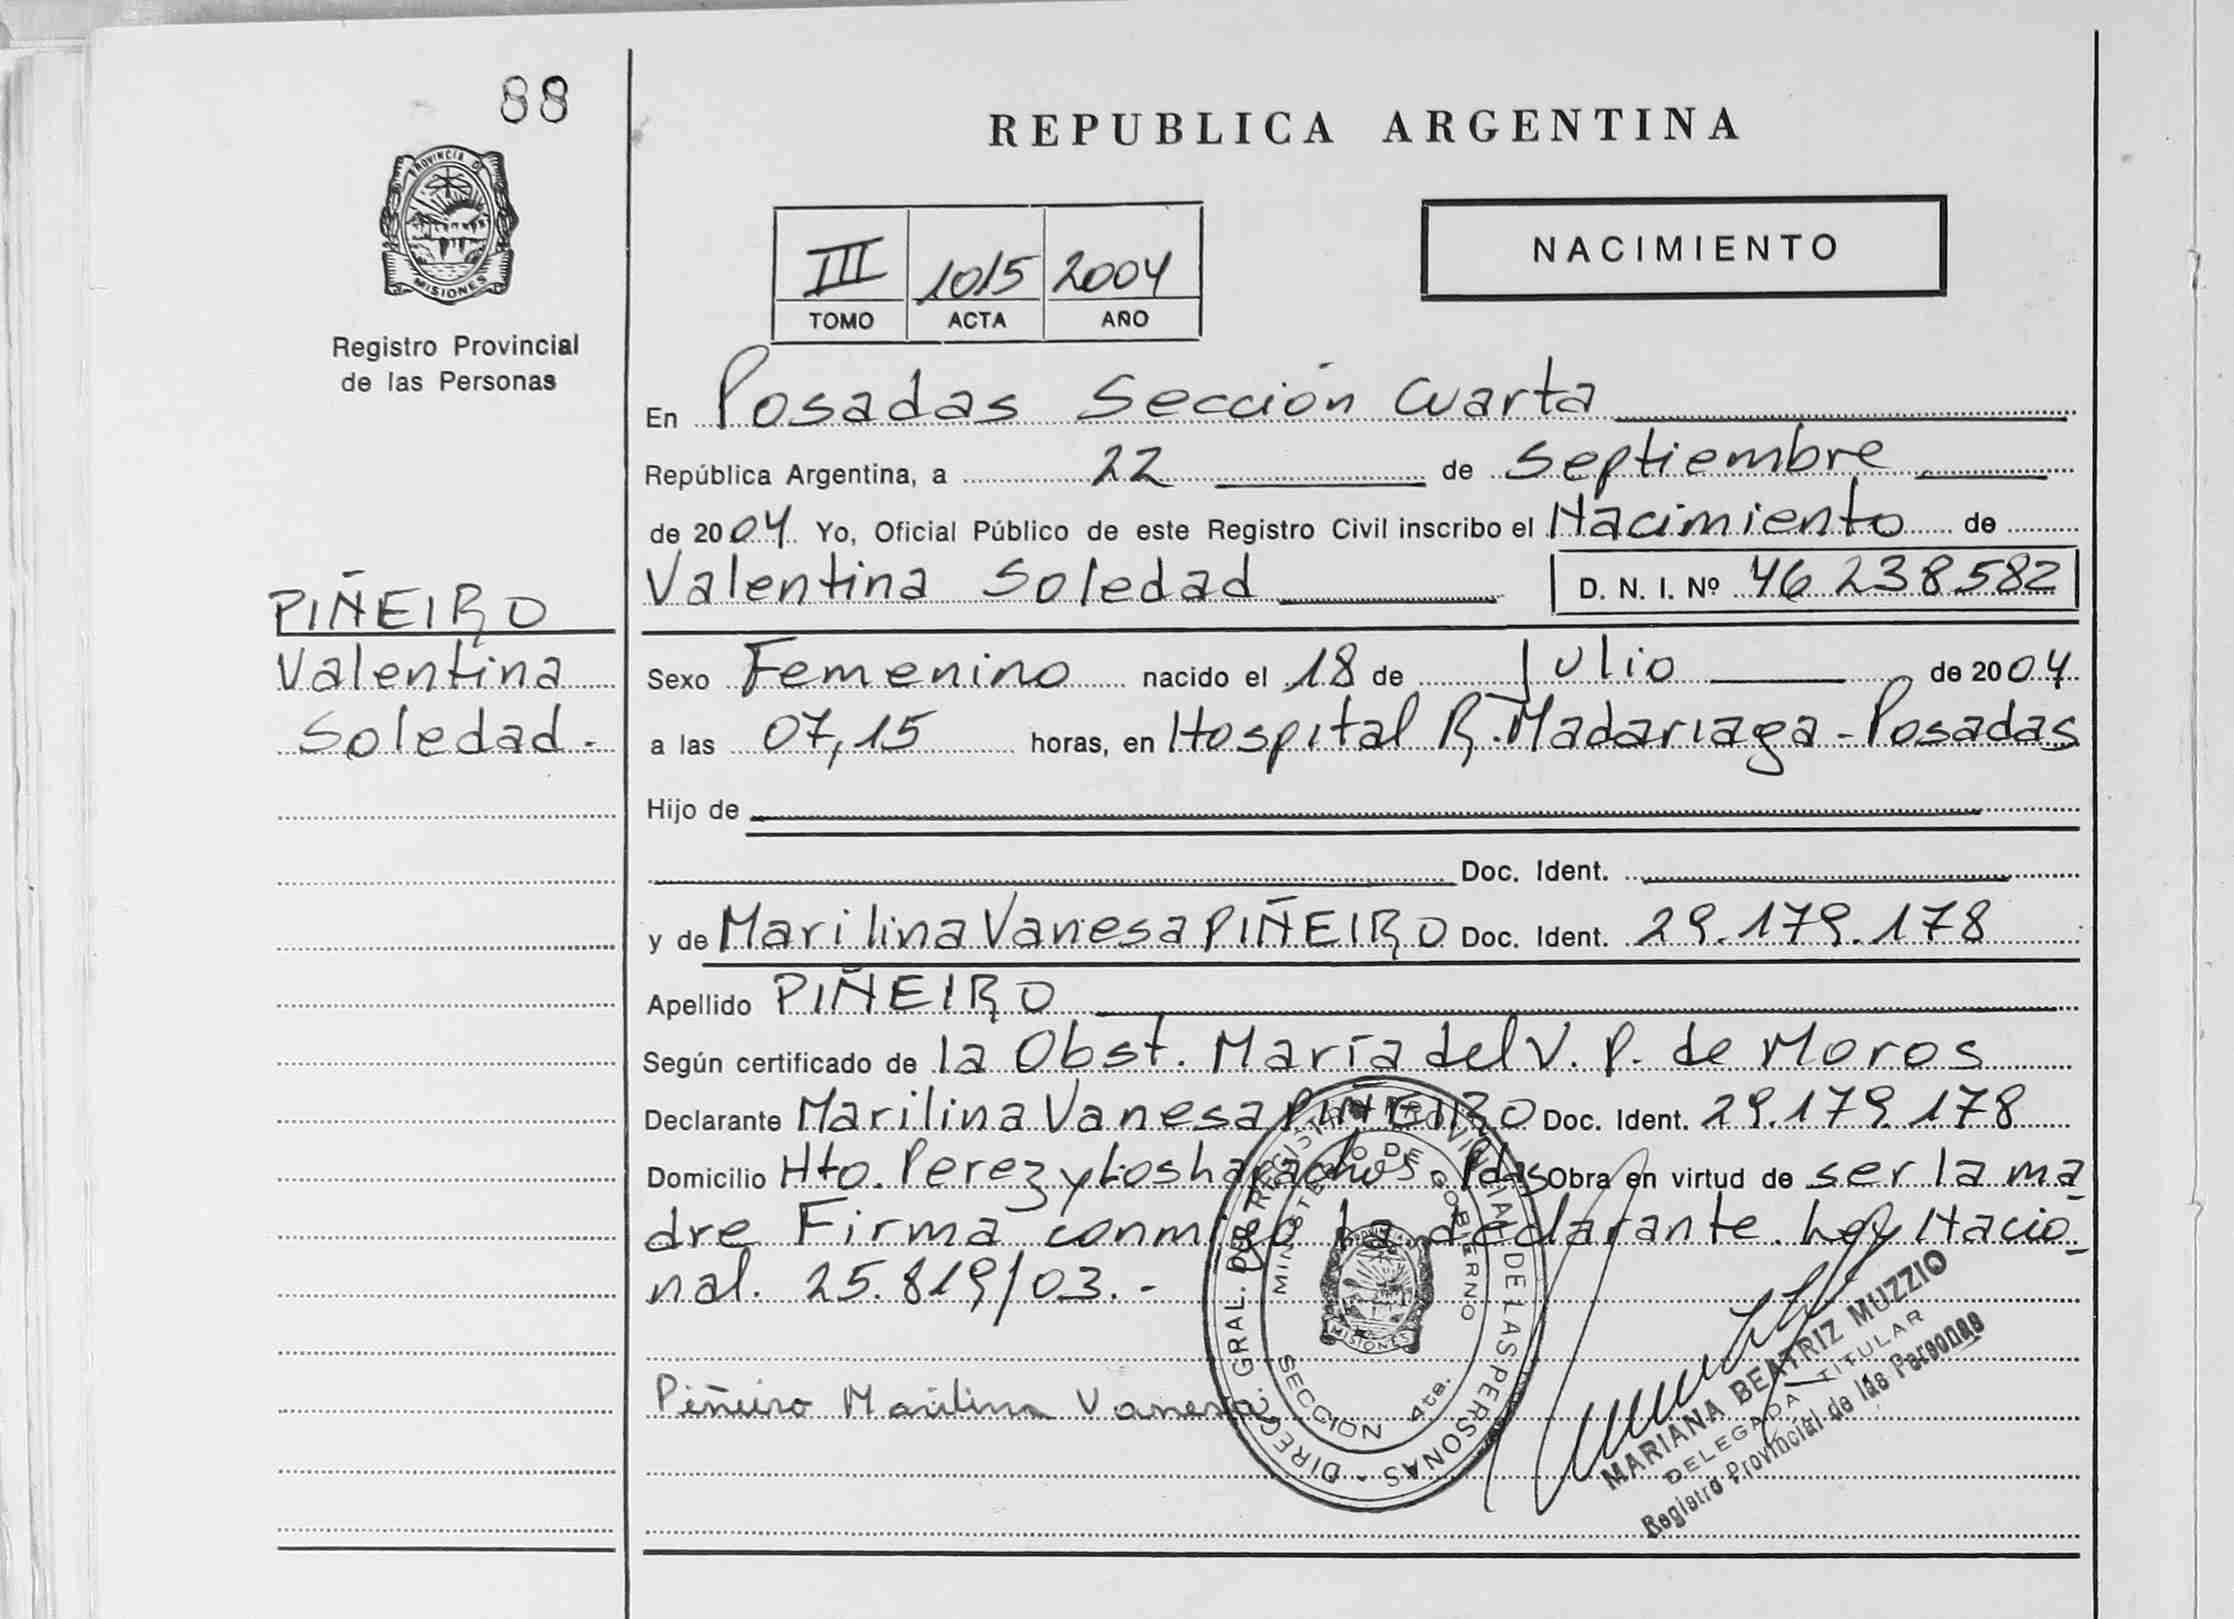 88
PROVINCIA DE
MISIONES
Registro Provincial
de las Personas
REPUBLICA ARGENTINA
III 1015 2004
TOMO ACTA AÑO
NACIMIENTO
En Posadas Sección Cuarta
República Argentina, a 22 de Septiembre
de 2004. Yo, Oficial Público de este Registro Civil inscribo el Nacimiento de
Valentina Soledad D. N. I. Nº 46 238.582
PIÑEIRO
Valentina
Soledad.-
Sexo Femenino nacido el 18 de Julio de 2004.
a las 07,15 horas, en Hospital R. Madariaga - Posadas
Hijo de
Doc. Ident.
y de Marilina Vanesa PIÑEIRO Doc. Ident. 29.179.178
Apellido PIÑEIRO
Según certificado de la Obst. María del V. P. de Moros
Declarante Marilina Vanesa PIÑEIRO Doc. Ident. 29.179.178
Domicilio Hto. Perez y Los Pdas Obra en virtud de ser la ma
dre Firma conmigo la declarante. Ley Nacio_
nal. 25.819/03.-
Piñeiro Marilina Vanesa
DIREC. GRAL. DEL REGISTRO PROVINCIAL DE LAS PERSONAS
MINISTERIO DE GOBIERNO
MISIONES
SECCION 4ta.
MARIANA BEATRIZ MUZZIO
DELEGADA TITULAR
Registro Provincial de las Personas